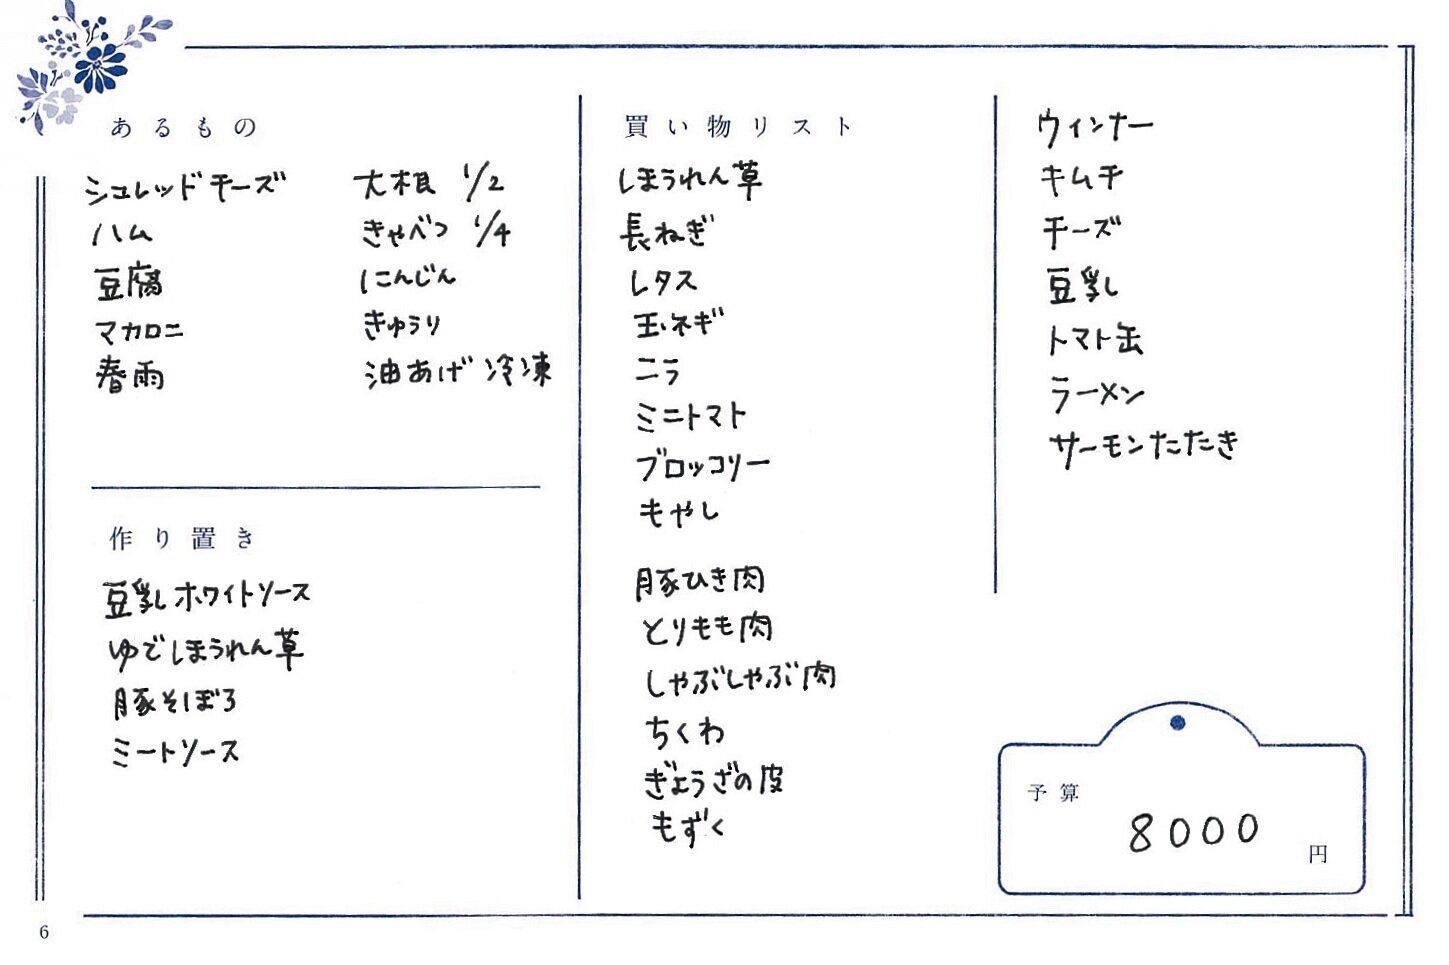 あるもの
シュレッドチーズ
ハム
豆腐
マカロニ
春雨
大根 1/2
きゃべつ 1/4
にんじん
きゅうり
油あげ 冷凍
作り置き
豆乳ホワイトソース
ゆでほうれん草
豚そぼろ
ミートソース
買い物リスト
ほうれん草
長ねぎ
レタス
玉ネギ
ニラ
ミニトマト
ブロッコリー
もやし
豚ひき肉
とりもも肉
しゃぶしゃぶ肉
ちくわ
ぎょうざの皮
もずく
ウィンナー
キムチ
チーズ
豆乳
トマト缶
ラーメン
サーモンたたき
予算
8000
円
6